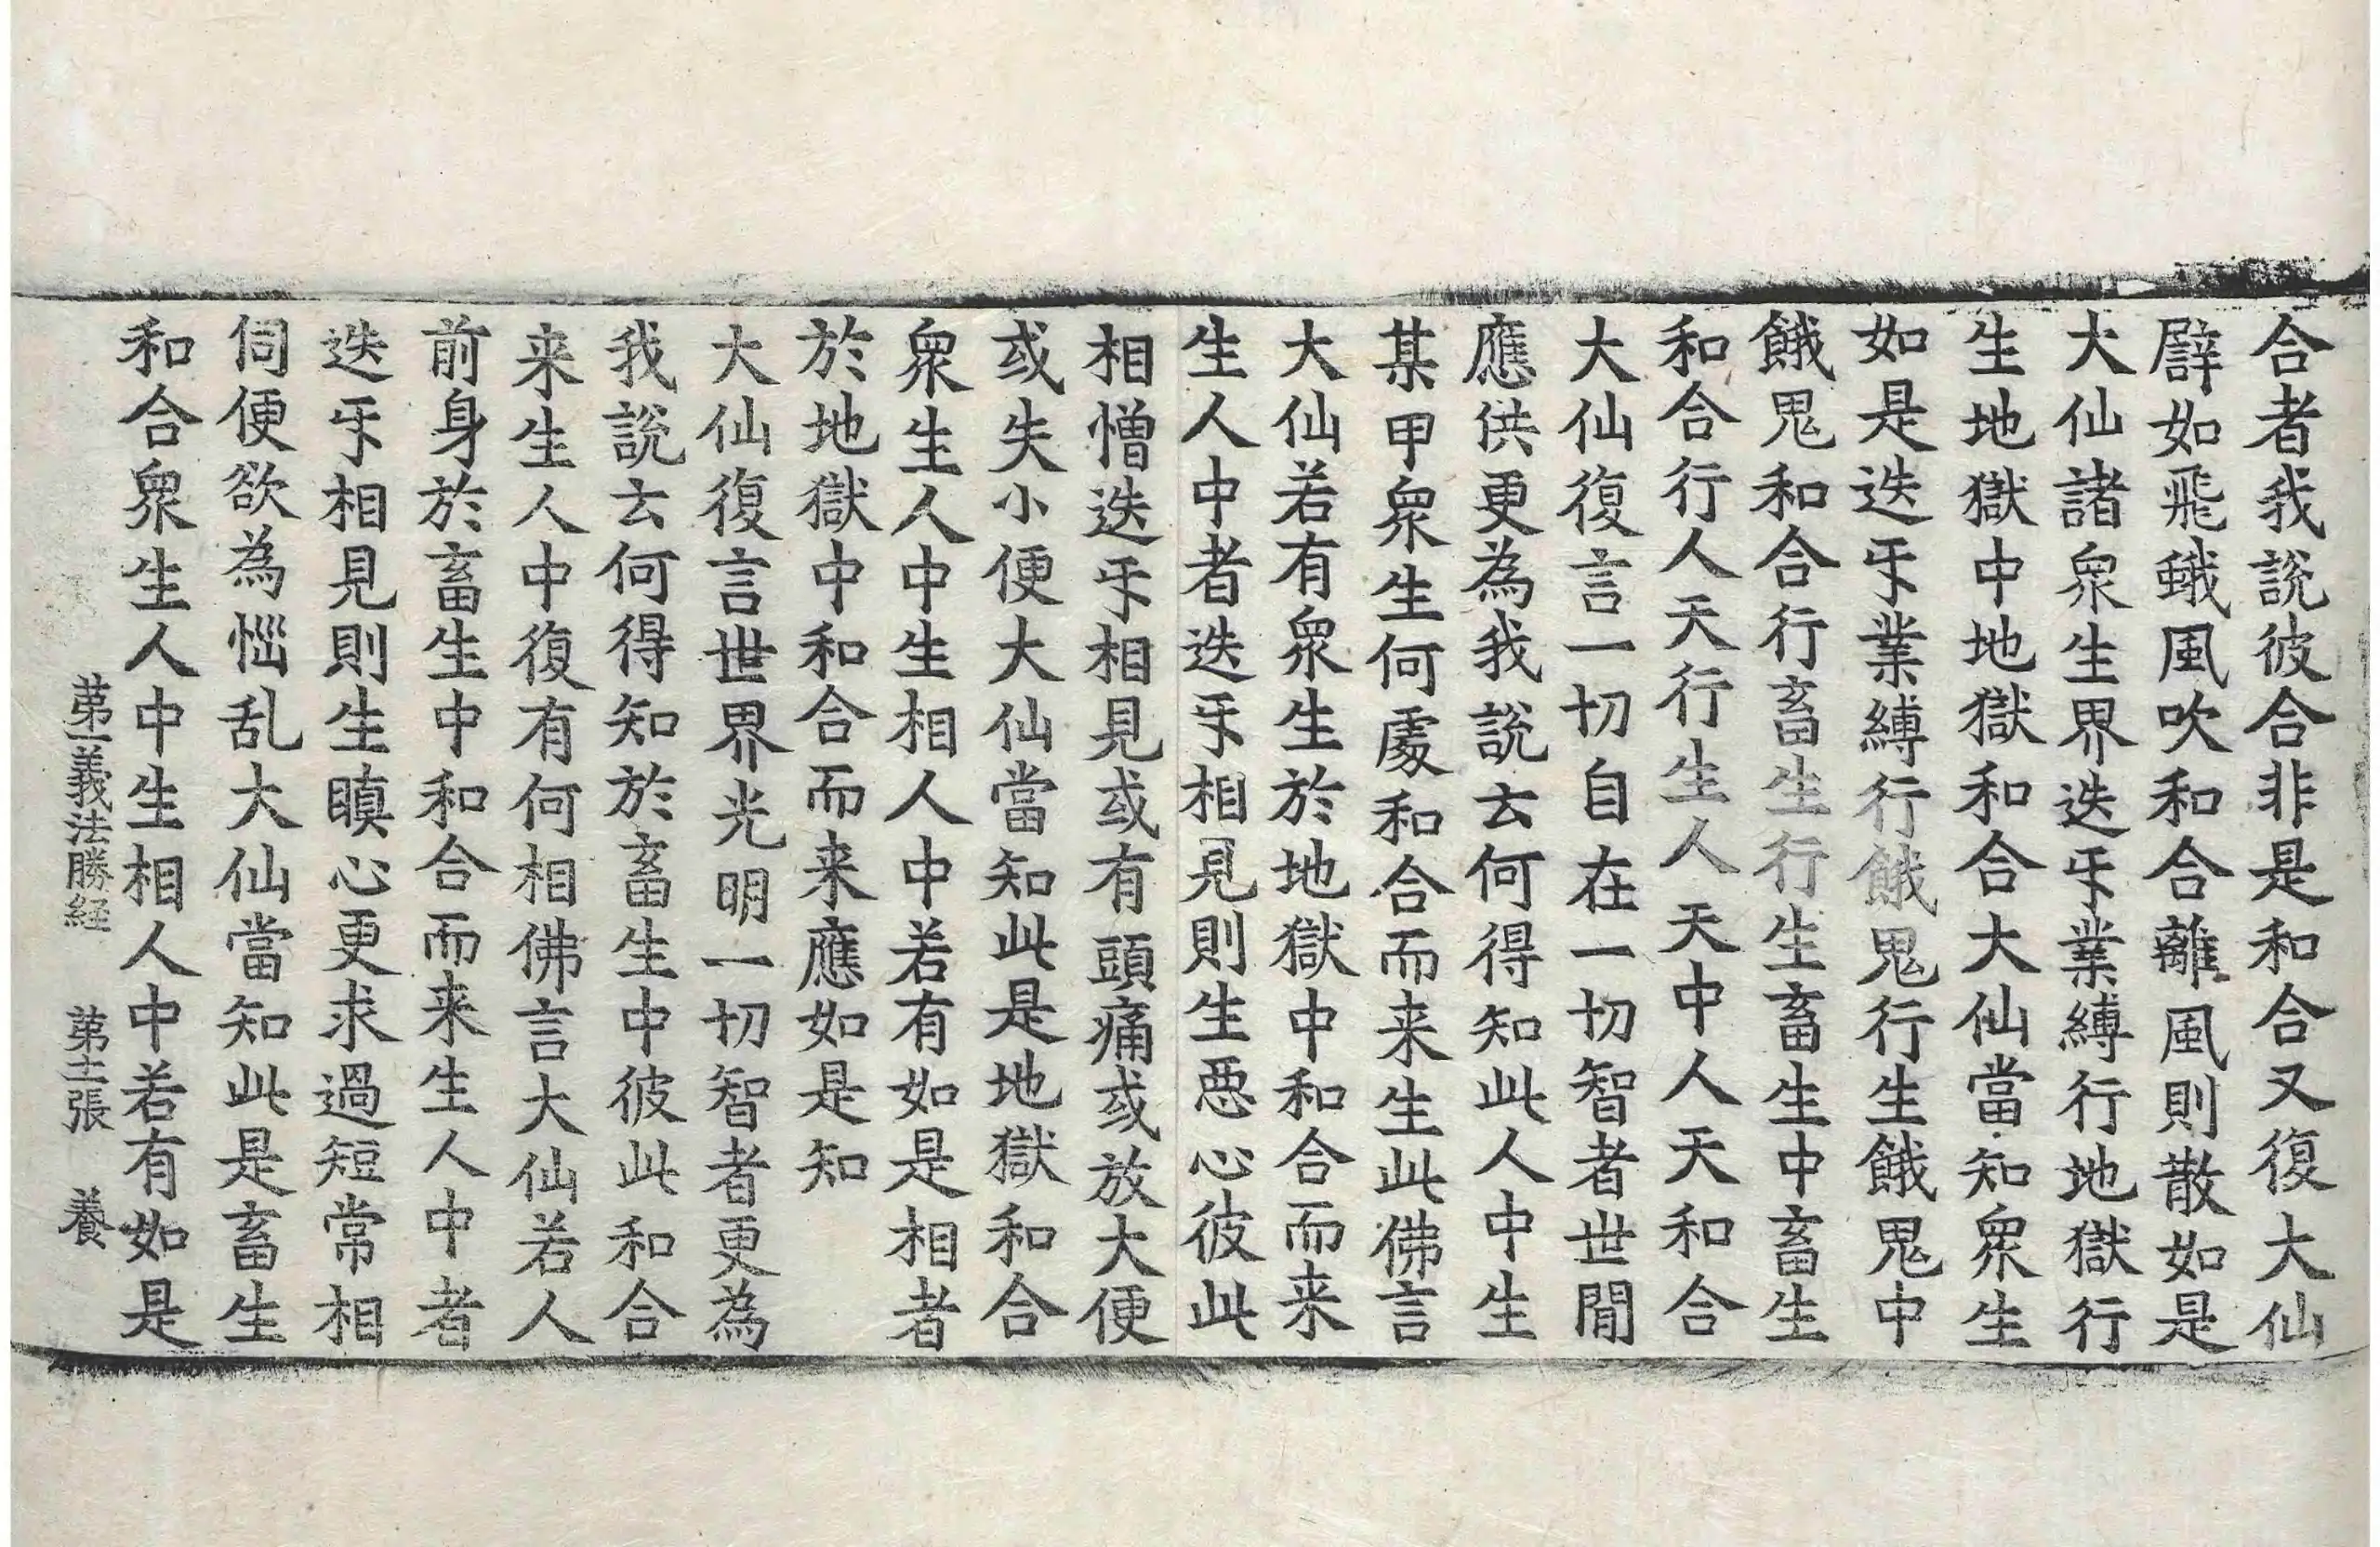 合者我說彼合非是和合又復大仙
譬如飛蛾風吹和合離風則散如是
大仙諸衆生界迭𠄔業縛行地獄行
生地獄中地獄和合大仙當知衆生
如是迭𠄔業縛行餓鬼行生餓鬼中
餓鬼和合行畜生行生畜生中畜生
和合行人天行生人天中人天和合
大仙復言一切自在一切智者世閒
應供更為我說去何得知此人中生
某甲衆生何處和合而来生此佛言
大仙若有衆生於地獄中和合而来
生人中者迭𠄔相見則生惡心彼此
相憎迭𠄔相見或有頭痛或放大便
或失小便大仙當知此是地獄和合
衆生人中生相人中若有如是相者
於地獄中和合而来應如是知
大仙復言世界光明一切智者更為
我說去何得知於畜生中彼此和合
来生人中復有何相佛言大仙若人
前身於畜生中和合而来生人中者
迭𠄔相見則生瞋心更求過短常相
伺便欲為惱乱大仙當知此是畜生
和合衆生人中生相人中若有如是
苐一義法勝経 苐十二張 養